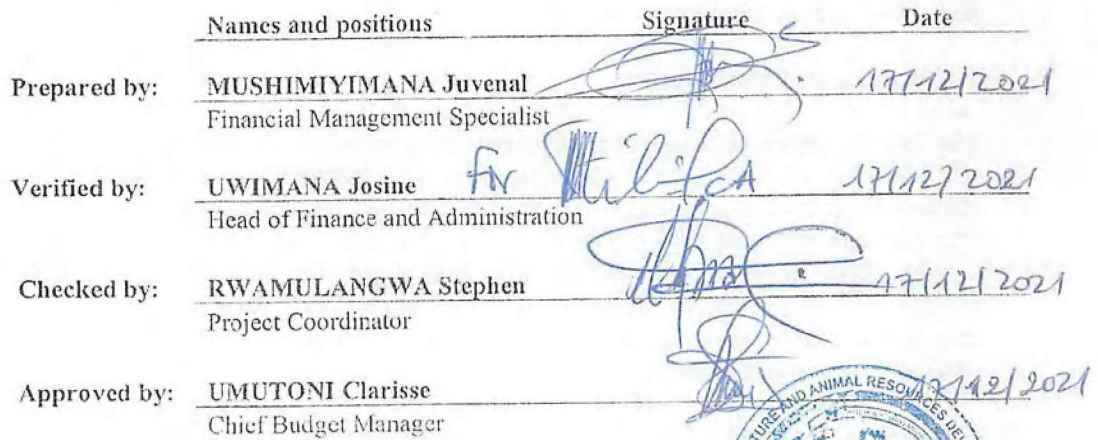 Names and positions Signature Date
Prepared by: MUSHIMIYIMANA Juvenal 17/12/2021
Financial Management Specialist
Verified by: UWIMANA Josine For 17/12/2021
Head of Finance and Administration
Checked by: RWAMULANGWA Stephen 17/12/2021
Project Coordinator
Approved by: UMUTONI Clarisse 17/12/2021
Chief Budget Manager
TURE AND ANIMAL RESOURCES DE